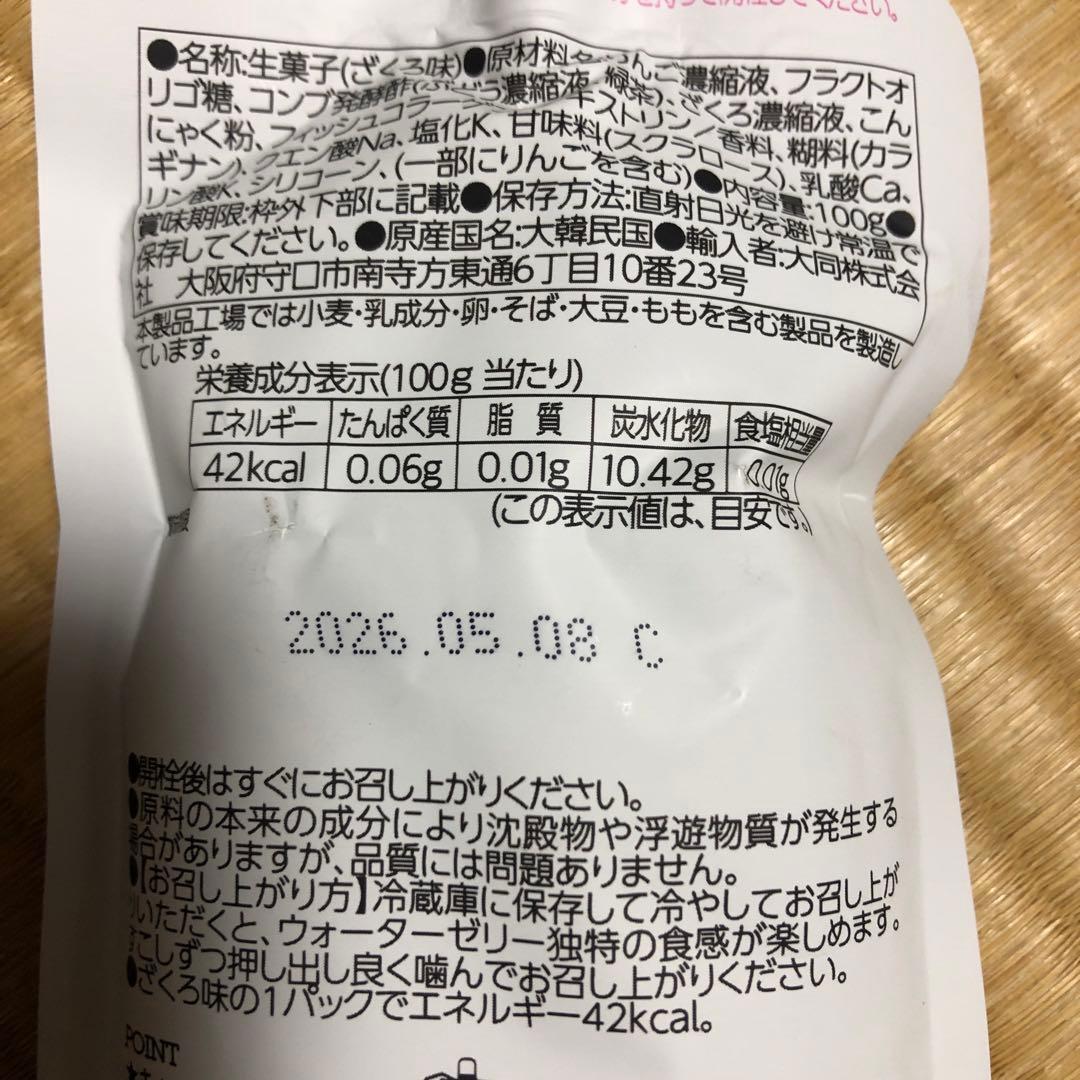 ください。
●名称:生菓子(ざくろ味)●原材料名:りんご濃縮液、フラクトオ
リゴ糖、コンブ発酵酢(ぶどう濃縮液、緑茶)、ざくろ濃縮液、こん
にゃく粉、フィッシュコラーゲン、キストリン/香料、糊料(カラ
ギナン)、クエン酸Na、塩化K、甘味料(スクラロース)、乳酸Ca、
リン酸K、シリコーン、(一部にりんごを含む)●内容量:100g●
賞味期限:枠外下部に記載●保存方法:直射日光を避け常温で
保存してください。●原産国名:大韓民国●輸入者:大同株式会
社 大阪府守口市南寺方東通6丁目10番23号
本製品工場では小麦・乳成分・卵・そば・大豆・ももを含む製品を製造し
ています。
栄養成分表示(100g 当たり)
エネルギー たんぱく質 脂 質 炭水化物 食塩相当量
42kcal 0.06g 0.01g 10.42g 0.01g
(この表示値は、目安です。)
2026.05.08 C
●開栓後はすぐにお召し上がりください。
●原料の本来の成分により沈殿物や浮遊物質が発生する
場合がありますが、品質には問題ありません。
●【お召し上がり方】冷蔵庫に保存して冷やしてお召し上が
りいただくと、ウォーターゼリー独特の食感が楽しめます。
すこしずつ押し出し良く噛んでお召し上がりください。
●ざくろ味の1パックでエネルギー42kcal。
POINT